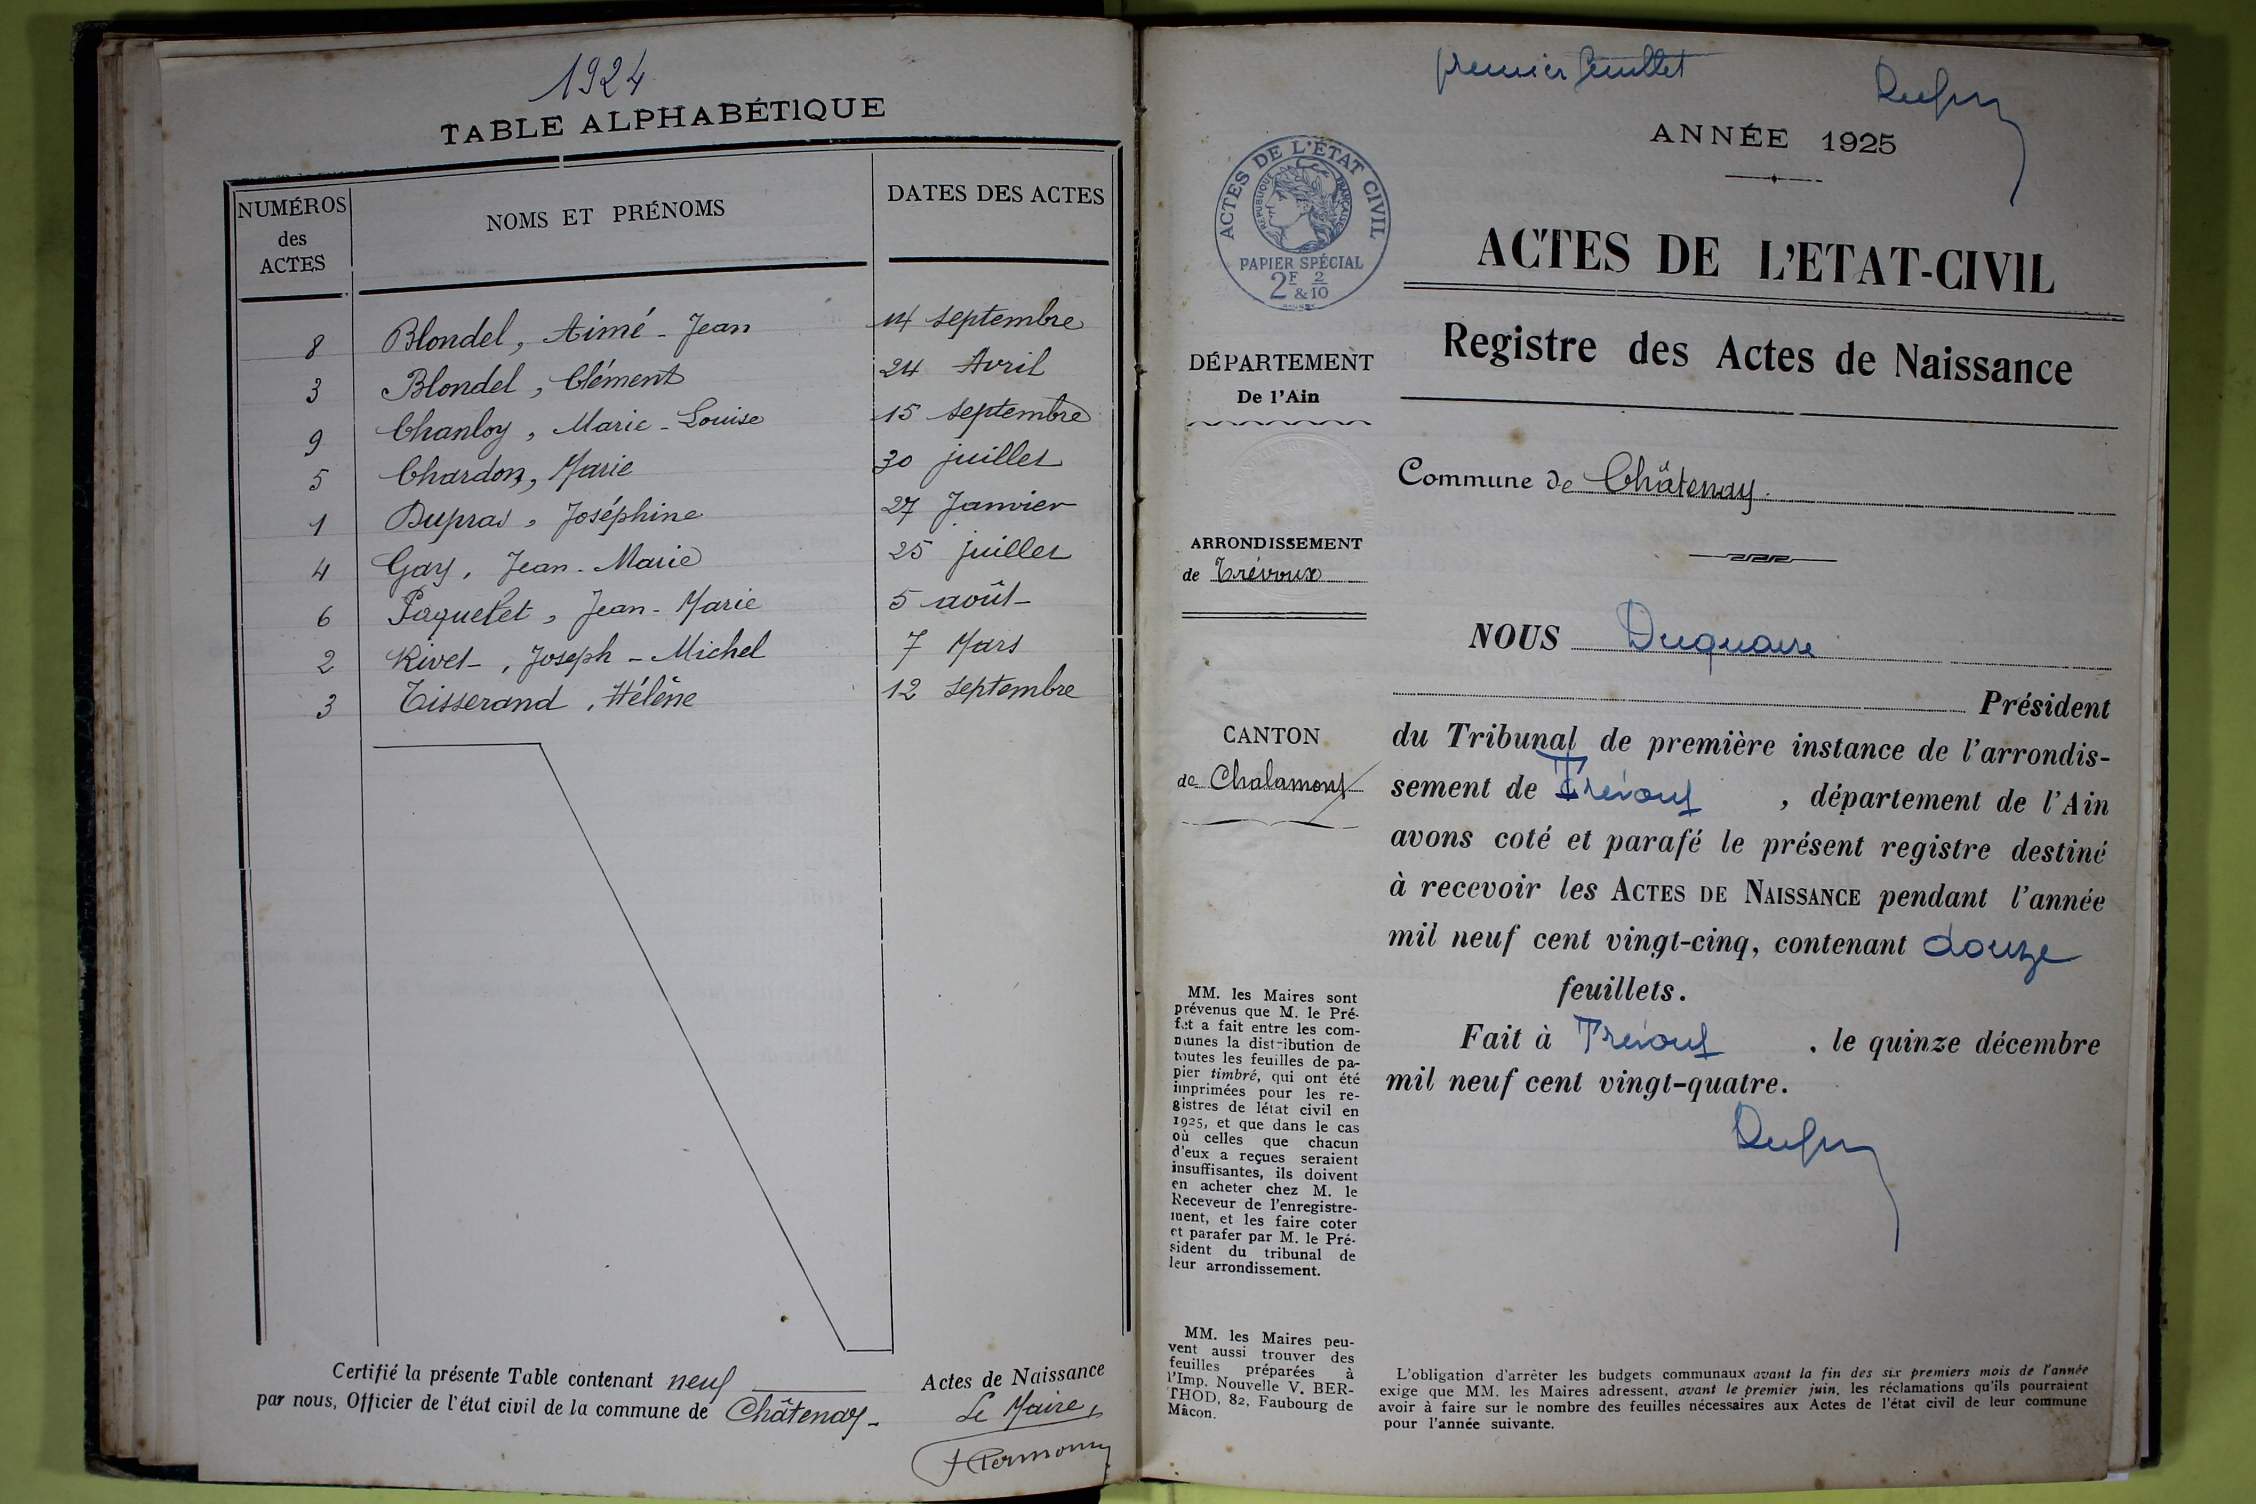 1924
TABLE ALPHABÉTIQUE
NUMÉROS des ACTES
NOMS ET PRÉNOMS
DATES DES ACTES
8 Blondel, Aimé - Jean 14 septembre
3 Blondel, Clément 24 Avril
9 Chanloy, Marie - Louise 15 septembre
5 Chardon, Marie 30 juillet
1 Dupras, Joséphine 27 Janvier
4 Gay, Jean - Marie 25 juillet
6 Paquelet, Jean - Marie 5 août
2 Rivet, Joseph - Michel 7 Mars
3 Tisserand, Hélène 12 septembre
Certifié la présente Table contenant neuf Actes de Naissance
par nous, Officier de l'état civil de la commune de Châtenay
Le Maire,
premier feuillet
ANNÉE 1925
ACTES DE L'ÉTAT CIVIL
RÉPUBLIQUE FRANÇAISE
PAPIER SPÉCIAL
2F & 2/10
ACTES DE L'ETAT-CIVIL
Registre des Actes de Naissance
DÉPARTEMENT
De l'Ain
Commune de Châtenay.
ARRONDISSEMENT
de Trévoux
CANTON
de Chalamont
NOUS Duquaire
Président
du Tribunal de première instance de l'arrondis-
sement de Trévoux, département de l'Ain
avons coté et parafé le présent registre destiné
à recevoir les ACTES DE NAISSANCE pendant l'année
mil neuf cent vingt-cinq, contenant douze
feuillets.
Fait à Trévoux, le quinze décembre
mil neuf cent vingt-quatre.
MM. les Maires sont
prévenus que M. le Pré-
fet a fait entre les com-
munes la distribution de
toutes les feuilles de pa-
pier timbré, qui ont été
imprimées pour les re-
gistres de létat civil en
1925, et que dans le cas
où celles que chacun
d'eux a reçues seraient
insuffisantes, ils doivent
en acheter chez M. le
Receveur de l'enregistre-
ment, et les faire coter
et parafer par M. le Pré-
sident du tribunal de
leur arrondissement.
MM. les Maires peu-
vent aussi trouver des
feuilles préparées à
l'Imp. Nouvelle V. BER-
THOD, 82, Faubourg de
Mâcon.
L'obligation d'arrêter les budgets communaux avant la fin des six premiers mois de l'année
exige que MM. les Maires adressent, avant le premier juin, les réclamations qu'ils pourraient
avoir à faire sur le nombre des feuilles nécessaires aux Actes de l'état civil de leur commune
pour l'année suivante.